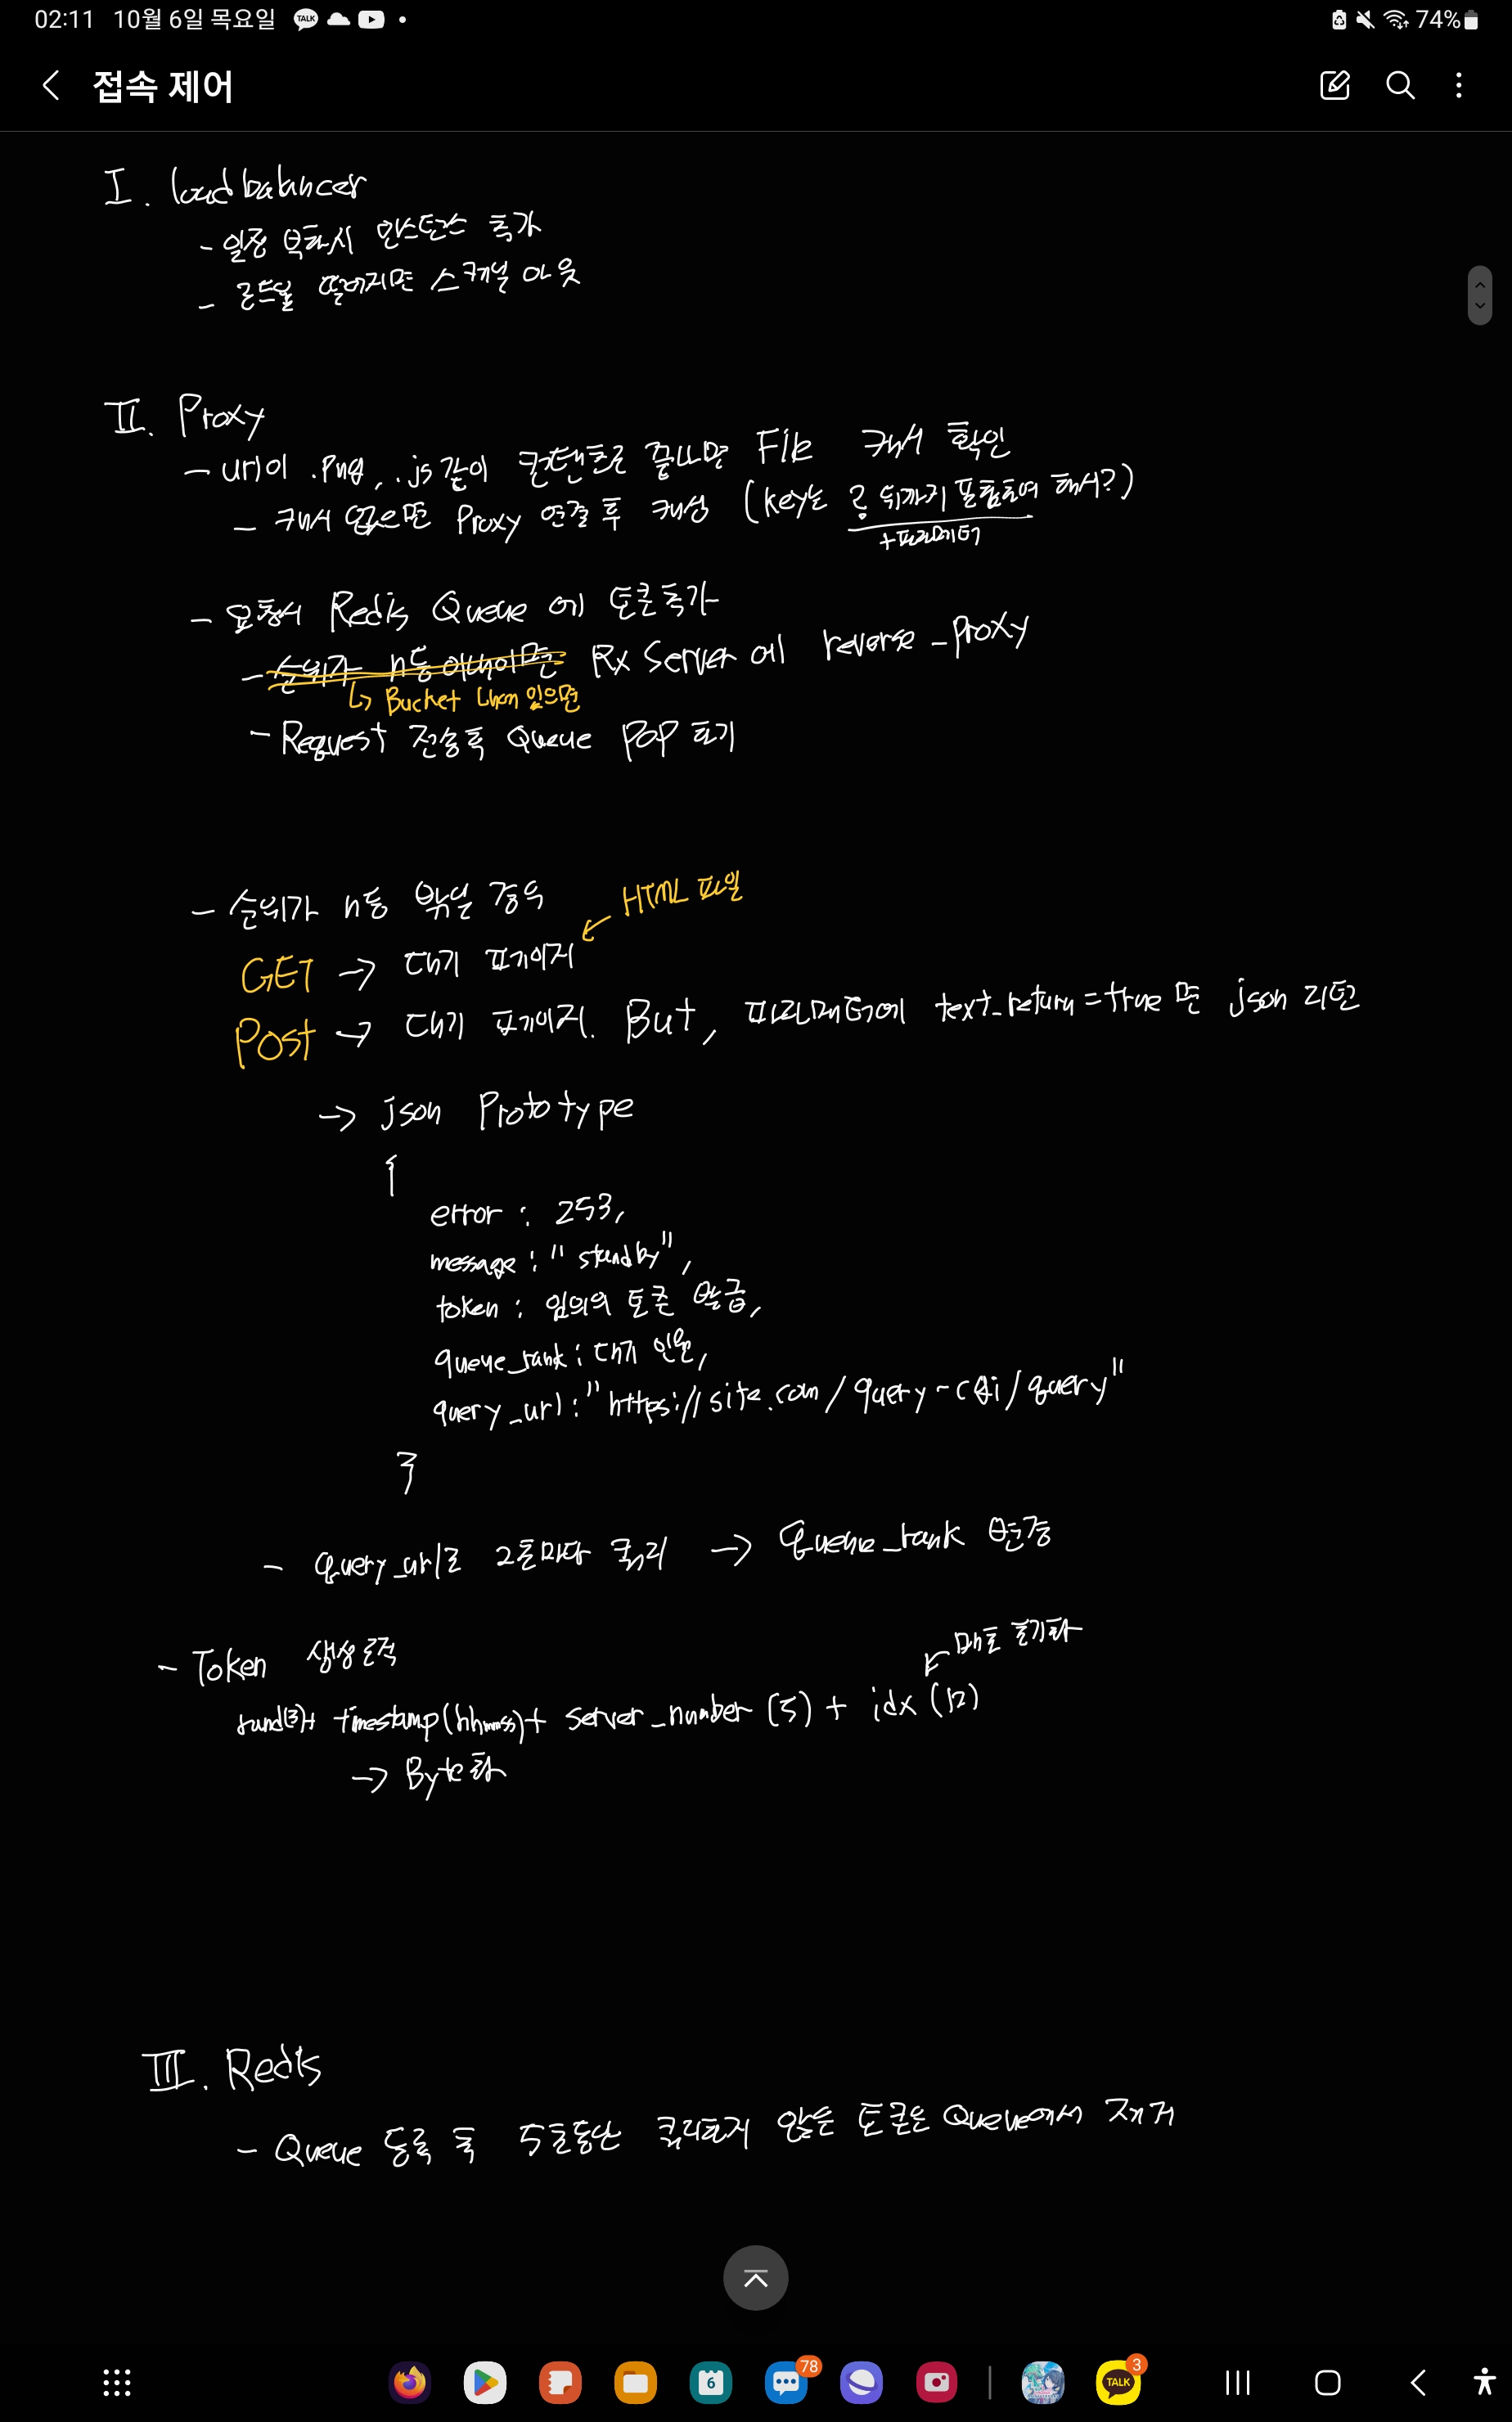 02:11 10월 6일 목요일 TALK
74%
접속 제어
I. loadbalancer
- 일정 부하시 인스턴스 추가
- 로드율 떨어지면 스케일 아웃
II. Proxy
- url이 .png, .js 같이 컨텐츠로 끝나면 File 캐시 확인
- 캐시 없으면 Proxy 연결 후 캐싱 (key는 ? 뒤까지 포함하여 해시?)
+파라메터
- 요청시 Redis Queue에 토큰추가
- 순위가 n등 이내이면 Rx Server에 reverse_proxy
↳ Bucket 남아 있으면
- Request 전송후 Queue POP 하기
- 순위가 n등 밖일 경우
HTML 파일
GET → 대기 페이지
POST → 대기 페이지. But, 파라메터에 text_return=true 면 json 리턴
→ json Prototype
{
error : 253,
message : "standby",
token : 임의의 토큰 발급,
queue_rank : 대기 인원,
query_url : "https://site.com/query-cgi/query"
}
- query_url로 2초마다 쿼리 → queue_rank 반환
- Token 생성로직
매초 초기화
rand(3)+ timestamp(hhmmss)+ server_number (5) + idx (12)
→ Byte화
III. Redis
- Queue 등록 후 5초동안 쿼리하지 않는 토큰은 Queue에서 제거
6
78
TALK
3